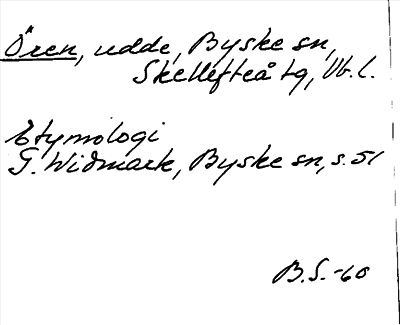 Ören, udde, Byske sn,
Skellefteå tg, Vb. l.
Etymologi
G. Widmark, Byske sn, s. 51
B.S. -60